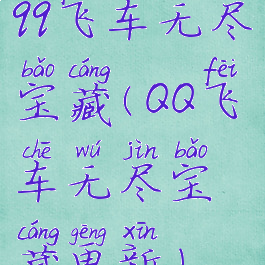 99飞车无尽
bǎo cáng fēi
宝藏(QQ飞
chē wú jìn bǎo
车无尽宝
cáng gēng xīn
藏更新)